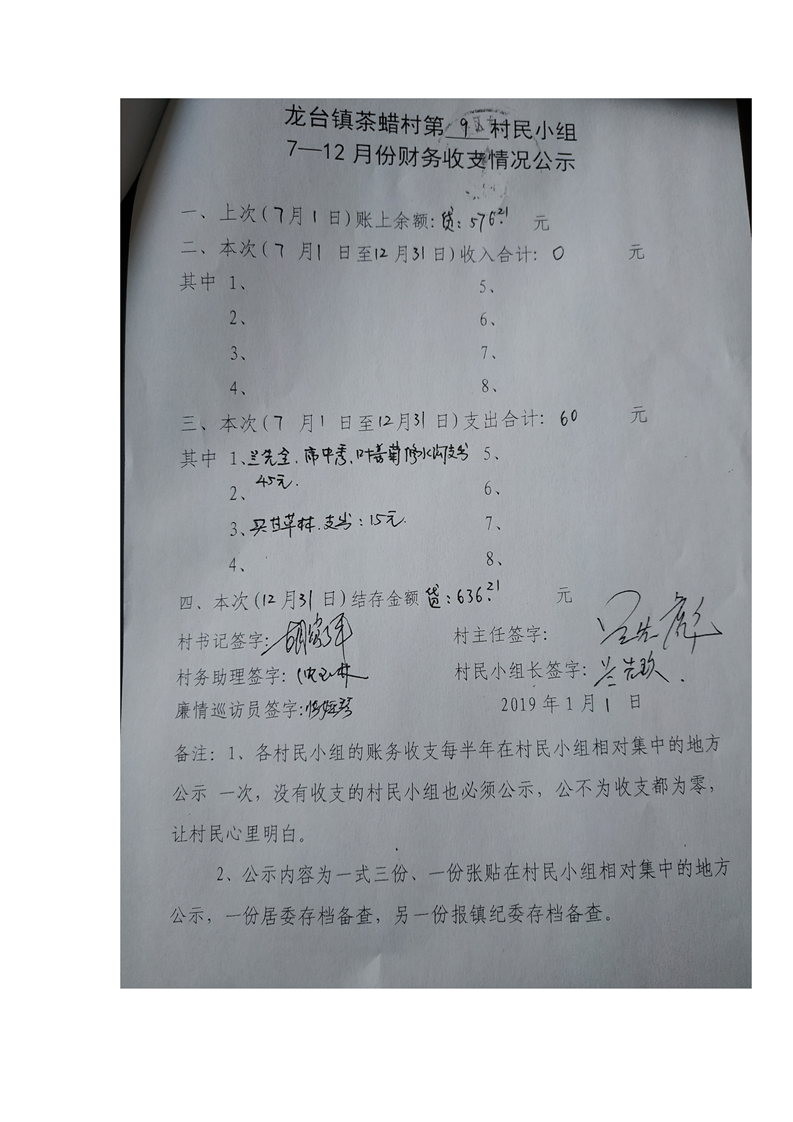 龙台镇茶蜡村第 9 村民小组
7—12月份财务收支情况公示
一、上次(7月1日)账上余额:贷:576.21 元
二、本次(7月1日至12月31日)收入合计: 0 元
其中 1、 5、
2、 6、
3、 7、
4、 8、
三、本次(7月1日至12月31日)支出合计: 60 元
其中 1、兰先全.席中秀、叶善菊修水沟支出 5、
2、45元. 6、
3、买甘草林.支出:15元. 7、
4、 8、
四、本次(12月31日)结存金额 贷:636.21 元
村书记签字: 村主任签字:
村务助理签字: 村民小组长签字:兰先玖
廉情巡访员签字: 2019年1月1日
备注:1、各村民小组的账务收支每半年在村民小组相对集中的地方
公示 一次,没有收支的村民小组也必须公示,公不为收支都为零,
让村民心里明白。
2、公示内容为一式三份、一份张贴在村民小组相对集中的地方
公示,一份居委存档备查,另一份报镇纪委存档备查。